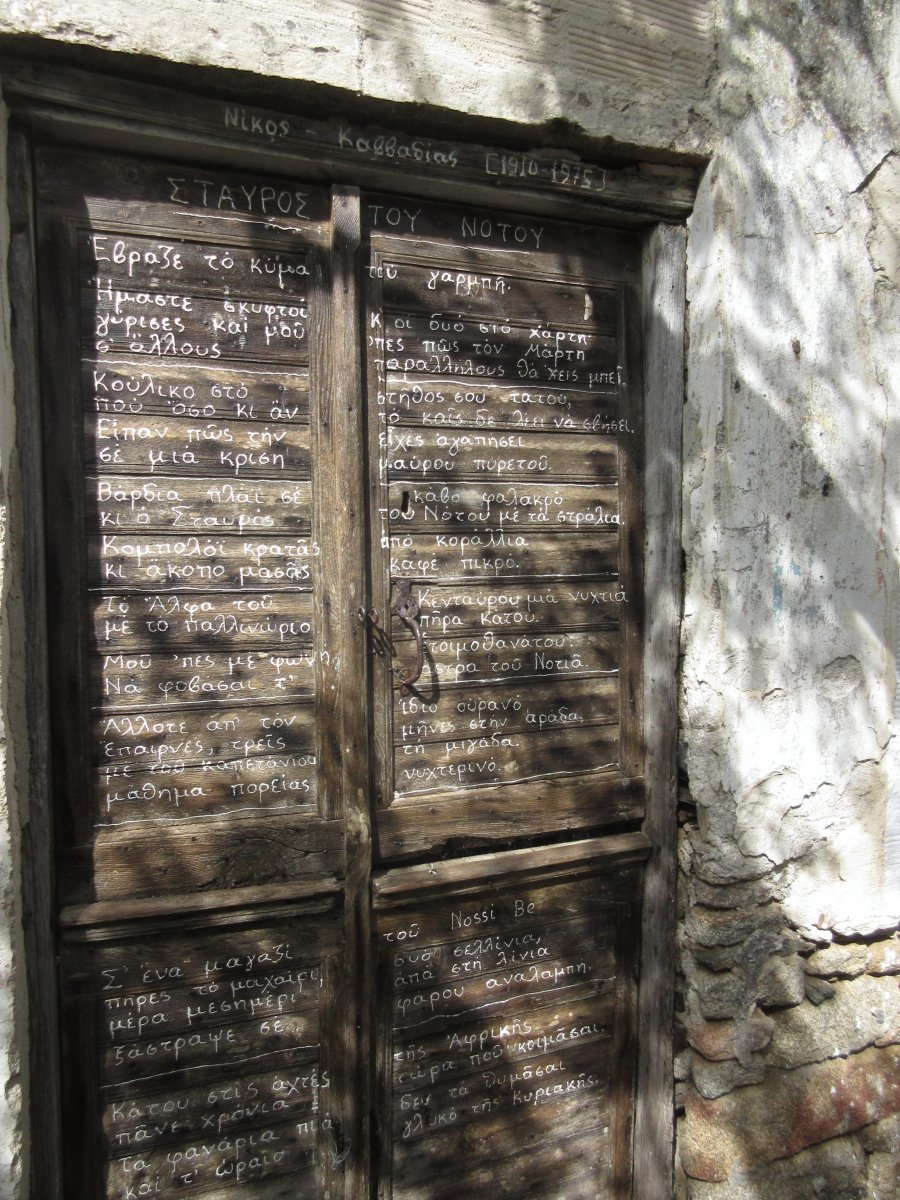 Νίκος - Καββαδίας [1910-1975]
ΣΤΑΥΡΟΣ ΤΟΥ ΝΟΤΟΥ
Ἔβραζε τό κύμα τοῦ γαρμπῆ.
Ἤμαστε σκυφτοί κ οι δυό στό χάρτη
γύρισες καί μοῦ ᾿πες πῶς τόν Μάρτη
σ' ἄλλους παραλλήλους θά ᾿χεις μπεῖ.
Κούλικο στό στῆθος σου τατού,
πού ὅσο κι ἄν τό καῖς δε λέει νά σβήσει.
Εἶπαν πῶς τήν εἶχες ἀγαπήσει
σέ μιά κρίση μαύρου πυρετοῦ.
Βάρδια πλάϊ σέ κάβο φαλακρό
κι ὁ Σταυρός τοῦ Νότου μέ τά στράλια.
Κομπολόϊ κρατᾶς από κοράλλια
κι ἄκοπο μασᾶς καφέ πικρό.
Τό Ἄλφα τοῦ Κενταύρου μιά νυχτιά
μέ το παλλινώριο πῆρα κάτου.
Μοῦ ᾿πες μέ φωνή τοιμοθανάτου:
Νά φοβᾶσαι τ' στρα τοῦ Νοτιᾶ.
Ἄλλοτε ἀπ' τόν ἴδιο οὐρανό
ἔπαιρνες, τρεῖς μῆνες στήν ἀράδα,
με τοῦ καπετάνιου τή μιγάδα
μάθημα πορείας νυχτερινό.
Σ' ἕνα μαγαζί τοῦ Nossi Be
πῆρες τό μαχαίρι, δυό σελλίνια,
μέρα μεσημέρι ἀπά στή λίνια
ξάστραψε σέ φάρου ἀναλαμπή.
Κάτου στίς ἀχτές τῆς Ἀφρικῆς
πᾶνε χρόνια τώρα πού κοιμᾶσαι.
τά φανάρια πιά δεν τά θυμᾶσαι
καί τ' ὡραῖο γλυκό τῆς Κυριακῆς.